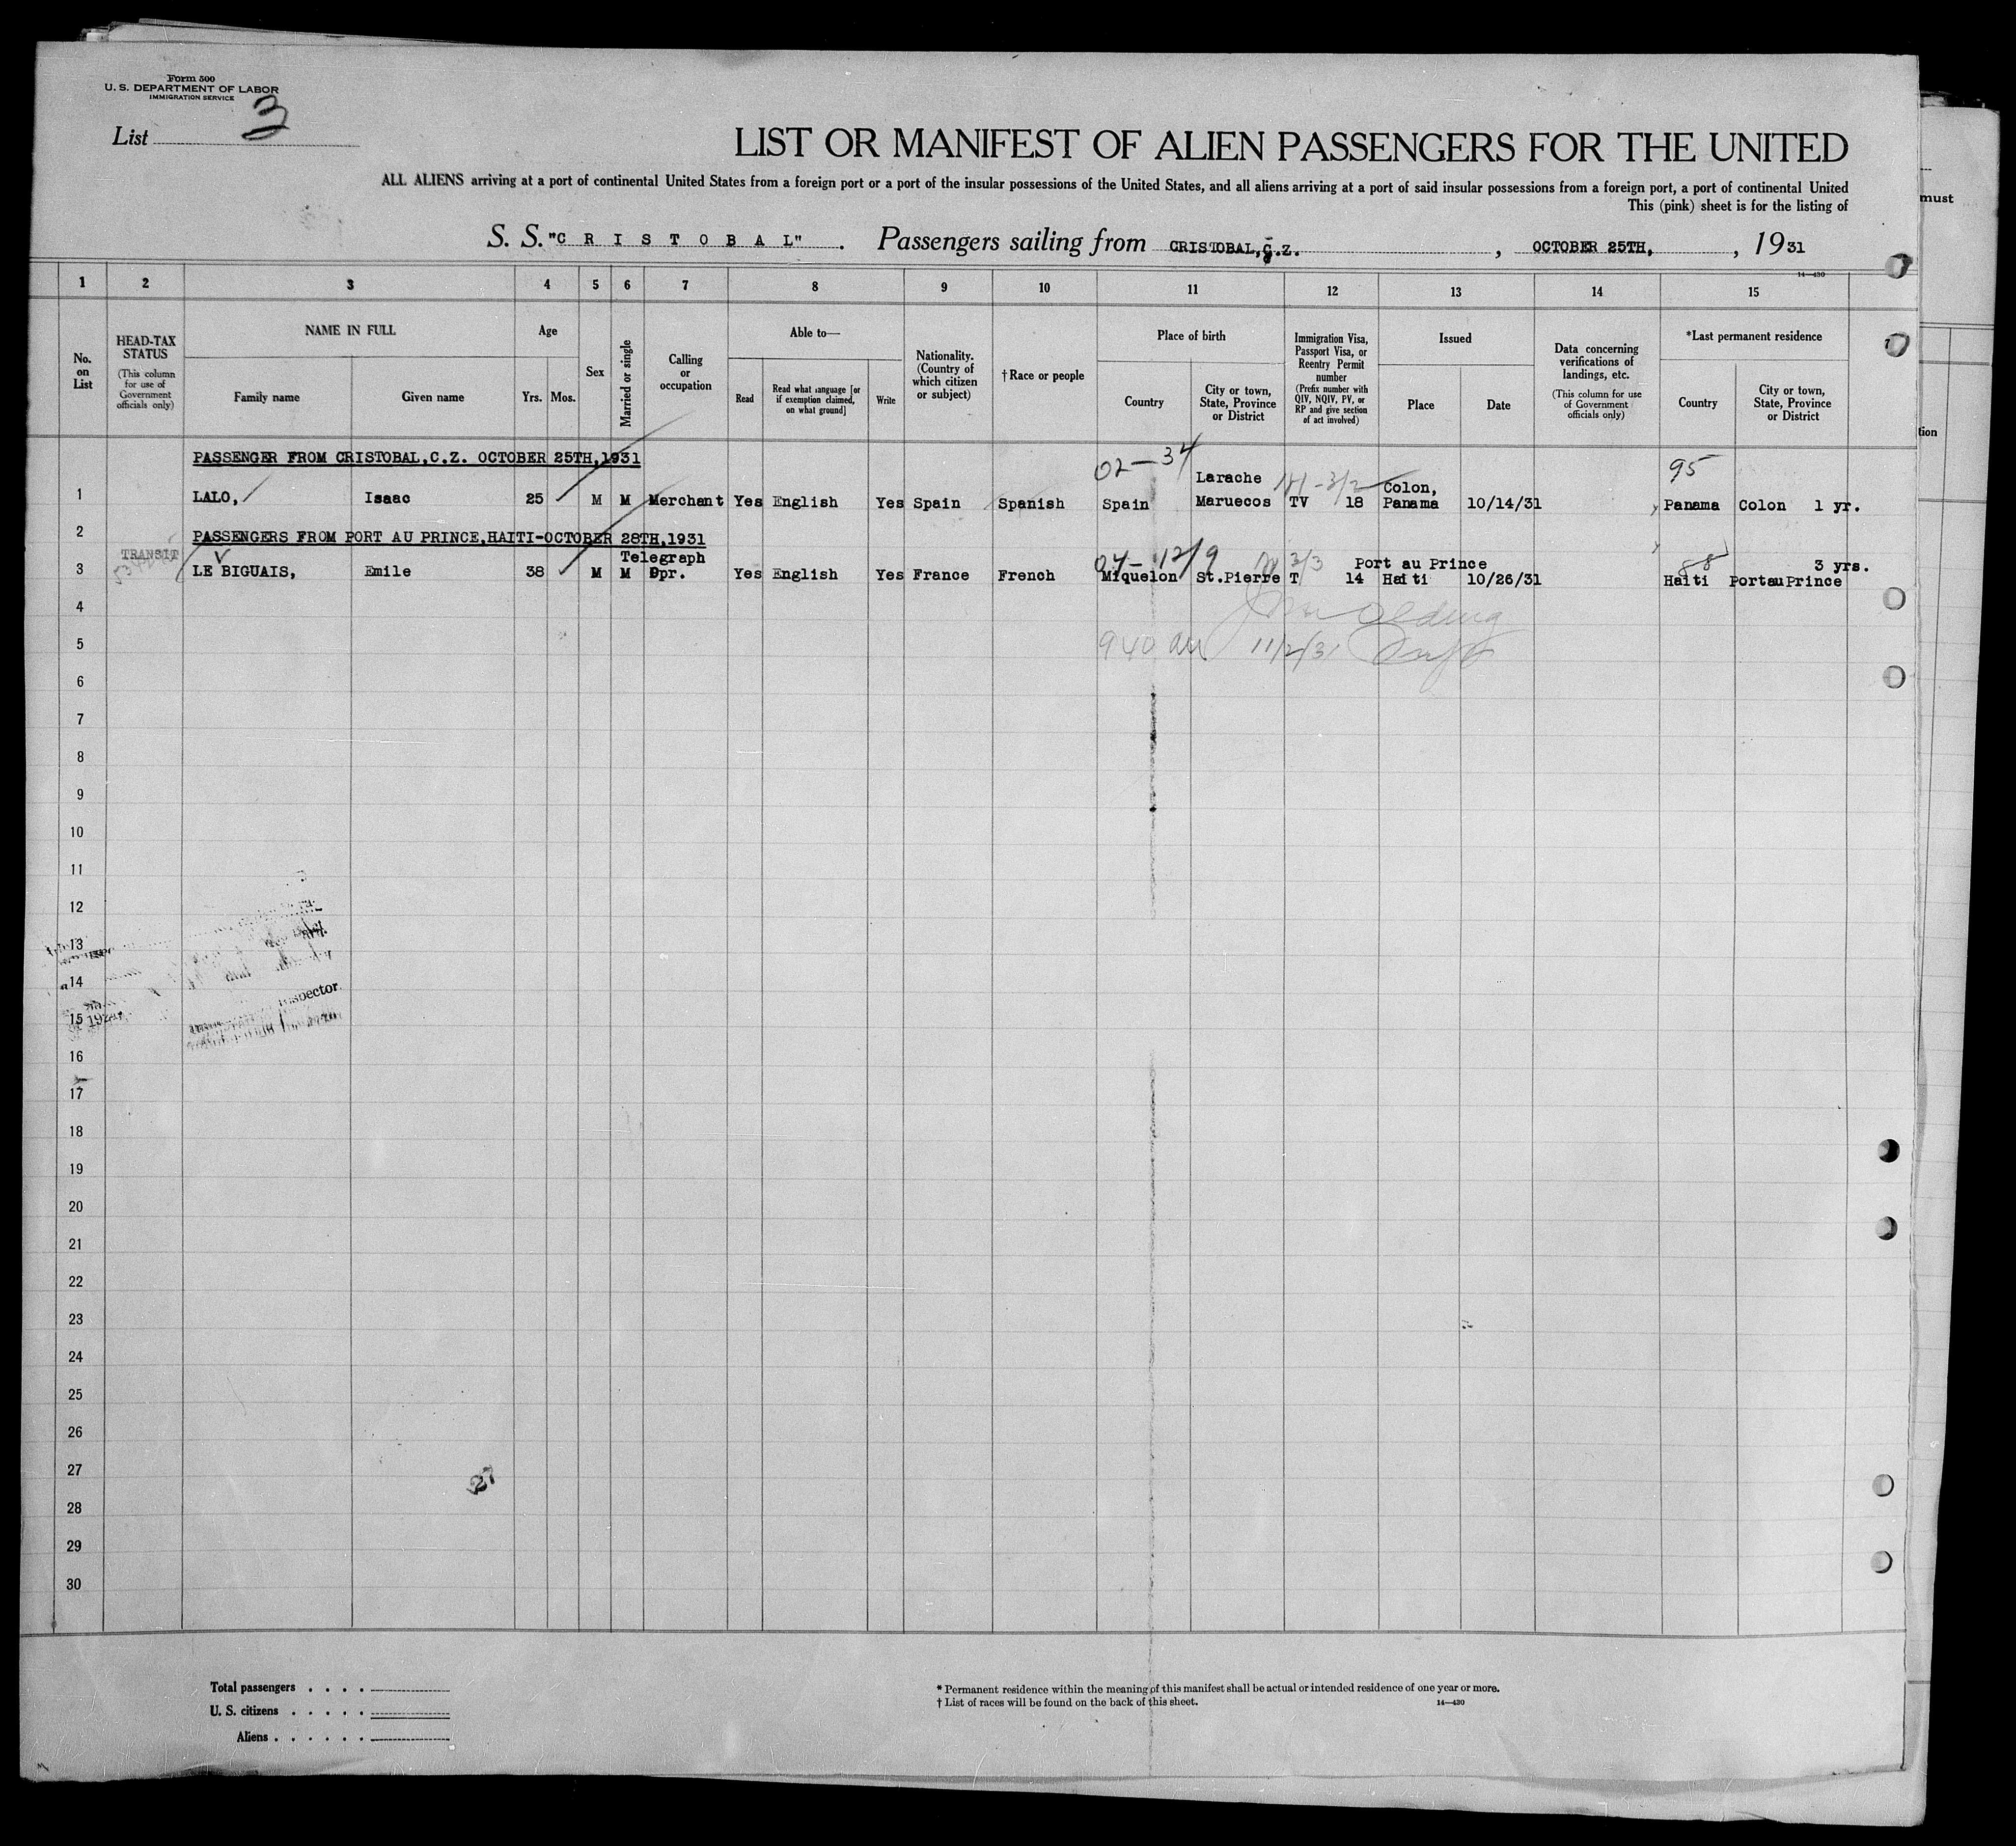 Form 500
U. S. DEPARTMENT OF LABOR
IMMIGRATION SERVICE
List 3
LIST OR MANIFEST OF ALIEN PASSENGERS FOR THE UNITED
ALL ALIENS arriving at a port of continental United States from a foreign port or a port of the insular possessions of the United States, and all aliens arriving at a port of said insular possessions from a foreign port, a port of continental United
This (pink) sheet is for the listing of
must
S. S. "C R I S T O B A L" . Passengers sailing from CRISTOBAL, C.Z. , OCTOBER 25TH, , 19 31
14—430
1 2 3 4 5 6 7 8 9 10 11 12 13 14 15
No. on List
HEAD-TAX STATUS
(This column for use of Government officials only)
NAME IN FULL
Family name
Given name
Age
Yrs. Mos.
Sex
Married or single
Calling or occupation
Able to—
Read
Read what language [or if exemption claimed, on what ground]
Write
Nationality. (Country of which citizen or subject)
† Race or people
Place of birth
Country
City or town, State, Province or District
Immigration Visa, Passport Visa, or Reentry Permit number
(Prefix number with QIV, NQIV, PV, or RP and give section of act involved)
Issued
Place
Date
Data concerning verifications of landings, etc.
(This column for use of Government officials only)
*Last permanent residence
Country
City or town, State, Province or District
tion
PASSENGER FROM CRISTOBAL,C.Z. OCTOBER 25TH,1931
02-34
95
Larache
Colon,
1 LALO, Isaac 25 M M Merchant Yes English Yes Spain Spanish Spain Maruecos TV 18 Panama 10/14/31 Panama Colon 1 yr.
2 PASSENGERS FROM PORT AU PRINCE,HAITI-OCTOBER 28TH,1931
TRANSIT
Telegraph
Port au Prince
3 yrs.
88
3 LE BIGUAIS, Emile 38 M M Opr. Yes English Yes France French Miquelon St.Pierre T 14 Haiti 10/26/31 Haiti PortauPrince
4
5 940 am 11/2/31
6
7
8
9
10
11
12
13
14
Inspector.
15
16
17
18
19
20
21
22
23
24
25
26
27
27
28
29
30
Total passengers . . . .
U. S. citizens . . . . .
Aliens . . . . . .
* Permanent residence within the meaning of this manifest shall be actual or intended residence of one year or more.
† List of races will be found on the back of this sheet.
14—430